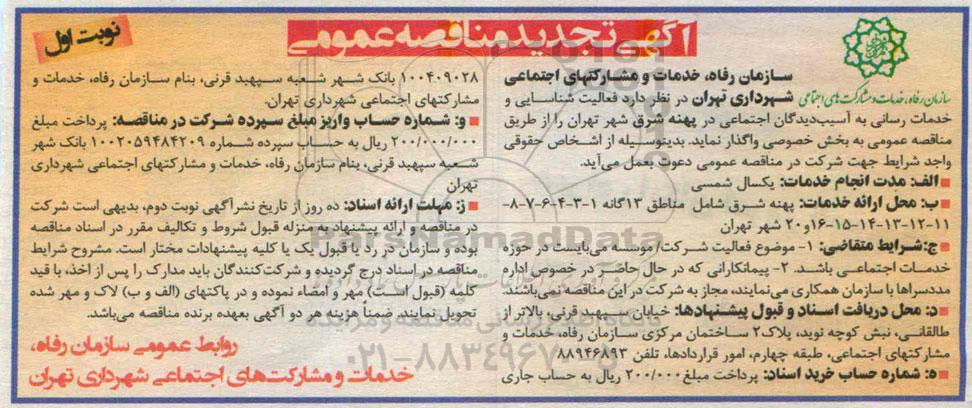 آگهی تجدید مناقصه عمومی
نوبت اول
سازمان رفاه، خدمات و مشارکتهای اجتماعی
سازمان رفاه، خدمات و مشارکت های اجتماعی
شهرداری تهران در نظر دارد فعالیت شناسایی و
خدمات رسانی به آسیب‌دیدگان اجتماعی در پهنه شرق شهر تهران را از طریق
مناقصه عمومی به بخش خصوصی واگذار نماید. بدینوسیله از اشخاص حقوقی
واجد شرایط جهت شرکت در مناقصه عمومی دعوت بعمل می‌آید.
الف: مدت انجام خدمات: یکسال شمسی
ب: محل ارائه خدمات: پهنه شرق شامل مناطق ۱۳گانه ۱-۳-۴-۶-۷-۸-
۱۱-۱۲-۱۳-۱۴-۱۵-۱۶و۲۰ شهر تهران
ج:شرایط متقاضی: ۱- موضوع فعالیت شرکت/ موسسه می‌بایست در حوزه
خدمات اجتماعی باشد. ۲- پیمانکارانی که در حال حاضر در خصوص اداره
مددسراها با سازمان همکاری می‌نمایند، مجاز به شرکت در این مناقصه نمی‌باشند.
د: محل دریافت اسناد و قبول پیشنهادها: خیابان سپهبد قرنی، بالاتر از
طالقانی، نبش کوچه نوید، پلاک۲ ساختمان مرکزی سازمان رفاه، خدمات و
مشارکتهای اجتماعی، طبقه چهارم، امور قراردادها، تلفن ۸۸۹۴۶۸۹۳
ه: شماره حساب خرید اسناد: پرداخت مبلغ۲۰۰/۰۰۰ ریال به حساب جاری
۱۰۰۴۰۹۰۲۸ بانک شهر شعبه سپهبد قرنی، بنام سازمان رفاه، خدمات و
مشارکتهای اجتماعی شهرداری تهران.
و: شماره حساب واریز مبلغ سپرده شرکت در مناقصه: پرداخت مبلغ
۲۰۰/۰۰۰/۰۰۰ ریال به حساب سپرده شماره ۱۰۰۲۰۵۹۴۸۴۲۰۹ بانک شهر
شعبه سپهبد قرنی، بنام سازمان رفاه، خدمات و مشارکتهای اجتماعی شهرداری
تهران
ز: مهلت ارائه اسناد: ده روز از تاریخ نشرآگهی نوبت دوم، بدیهی است شرکت
در مناقصه و ارائه پیشنهاد به منزله قبول شروط و تکالیف مقرر در اسناد مناقصه
بوده و سازمان در رد یا قبول یک یا کلیه پیشنهادات مختار است. مشروح شرایط
مناقصه در اسناد درج گردیده و شرکت‌کنندگان باید مدارک را پس از اخذ، با قید
کلمه (قبول است) مهر و امضاء نموده و در پاکتهای (الف و ب) لاک و مهر شده
تحویل نمایند. ضمناً هزینه هر دو آگهی بعهده برنده مناقصه می‌باشد.
روابط عمومی سازمان رفاه،
خدمات و مشارکت‌های اجتماعی شهرداری تهران
ParsNamadData
۰۲۱-۸۸۳۴۹۶۷